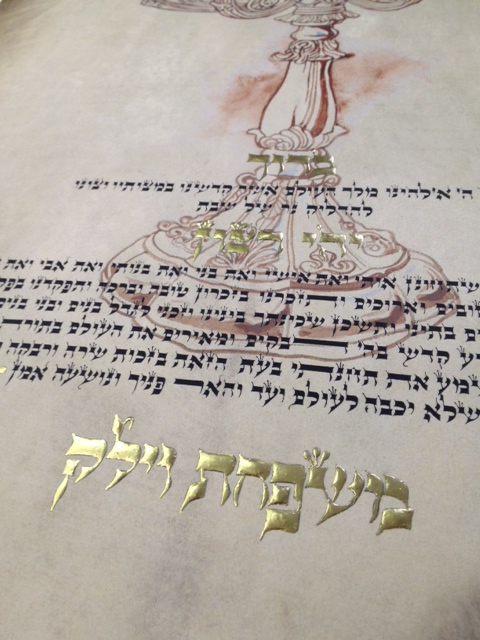 ברוך
ה' אילהינו מלך העולם אשר קדשנו במצותיו וצונו
להדליק נר של שבת
יהי רצון
שתחונן אותי ואת אישי ואת בני ואת בנותי ואת אבי ואת
וארוכים ותזכרנו בזכרון טובה וברכה ותפקדנו
בתינו ותשכן שכינתך בינינו וזכני לגדל בנים ובני בנים
קדש בה' דבקים ומאירים את העולם בתורה
את תחנתי בעת הזאת בזכות שרה ורבקה
שלא יכבה לעולם ועד והאר פניך ונושעה אמן
משפחת וילק